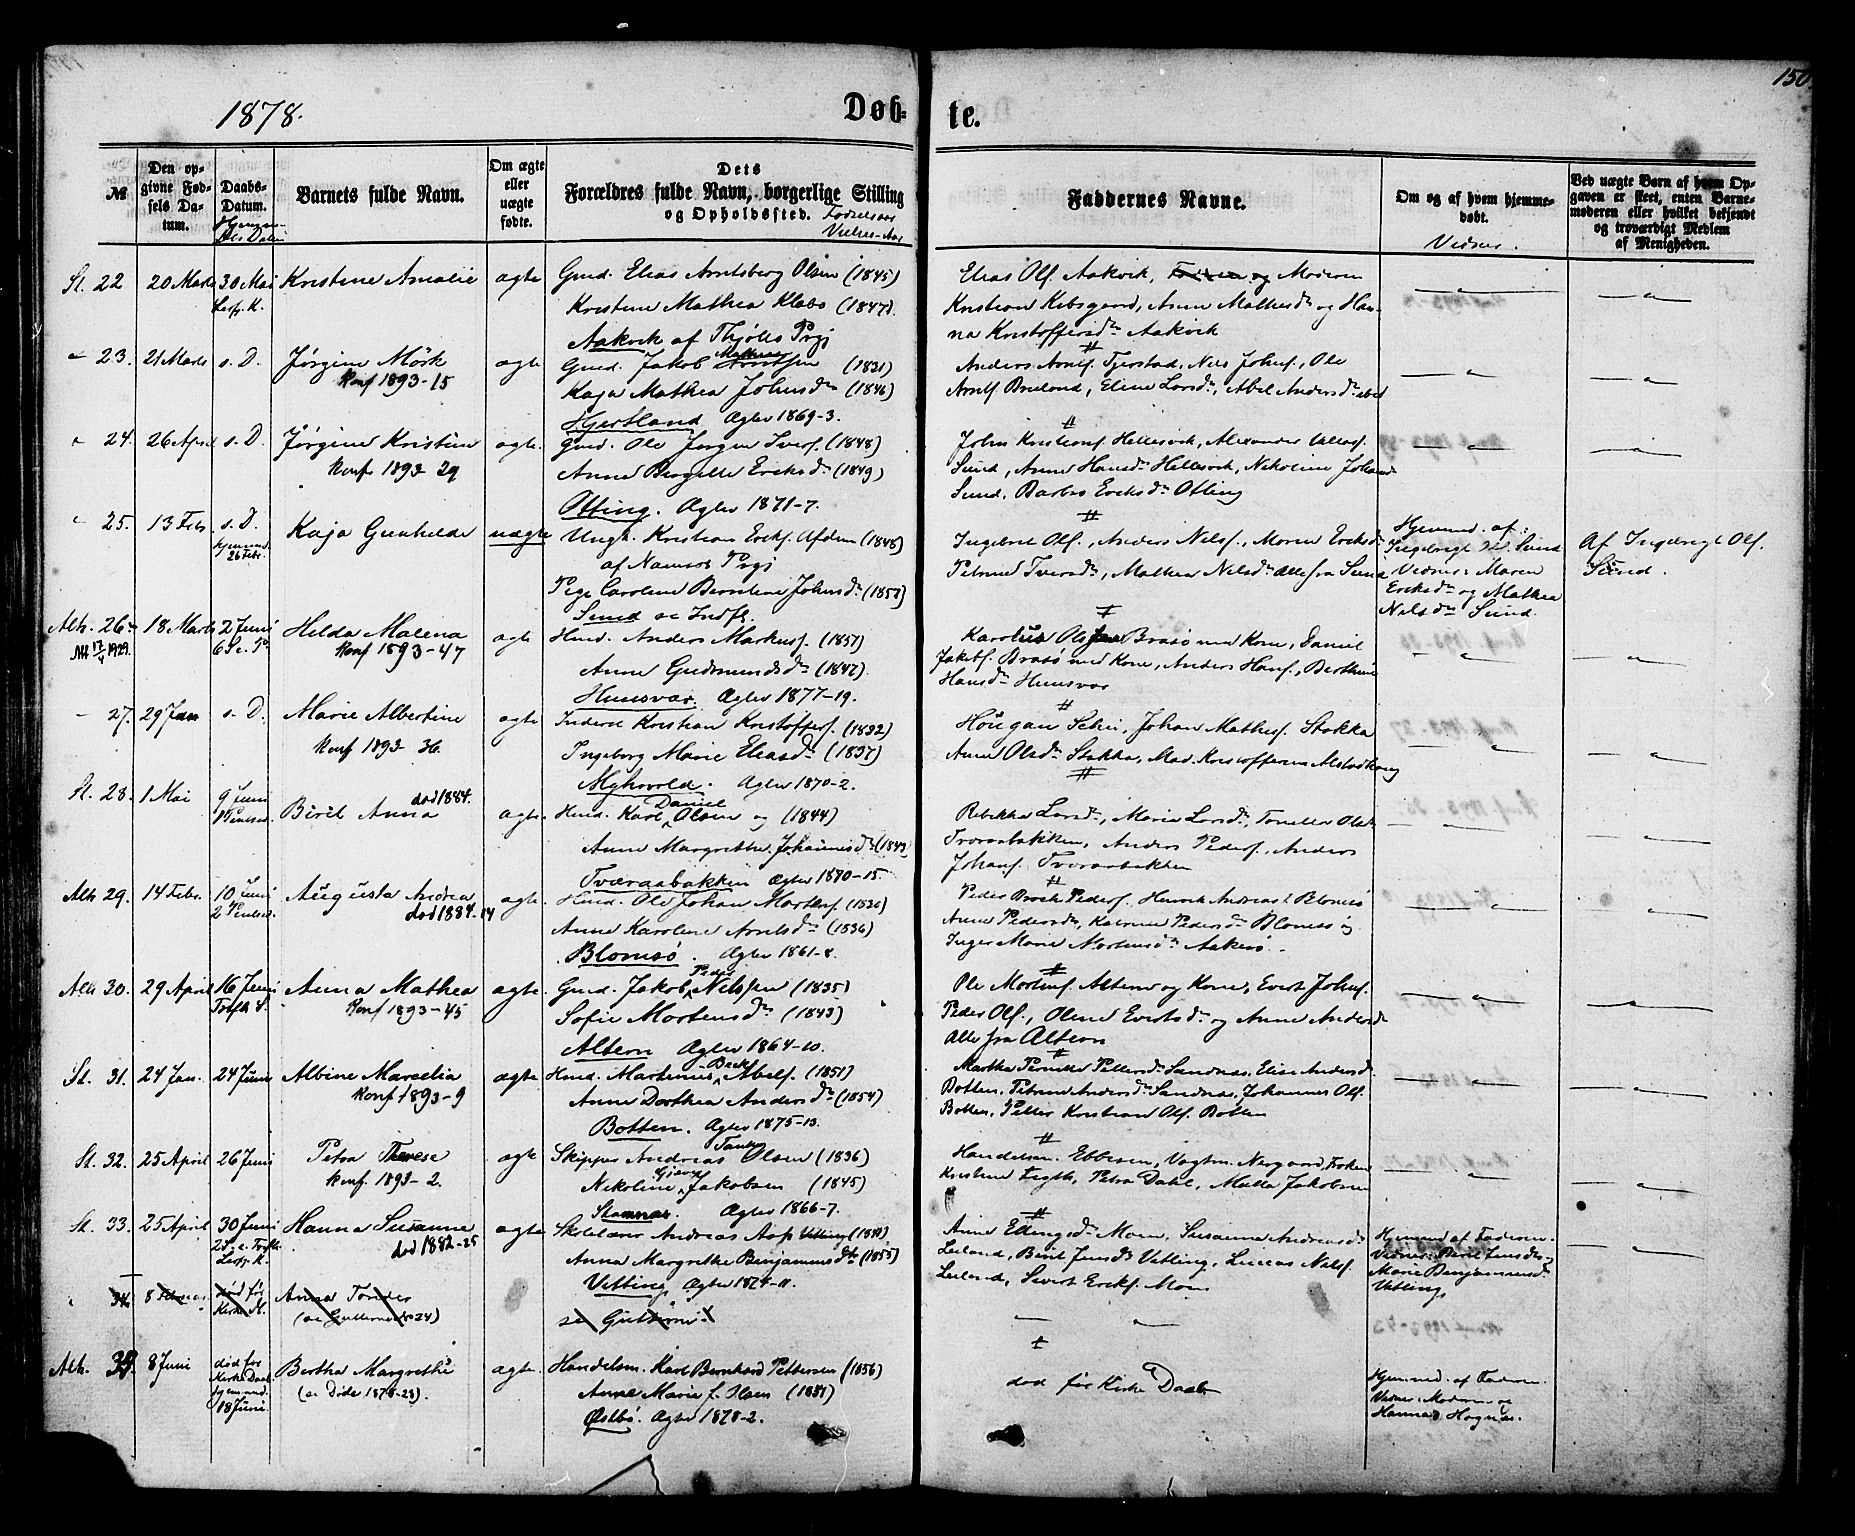 150.
1878.
Døb-
te.
№
Den op-
givne Fød-
sels Da-
tum.
Daabs-
Datum.
Barnets fulde Navn.
Om ægte
eller
uægte
fødte.
Dets
Forældres fulde Navn, borgerlige Stilling
og Opholdssted. Fødselsaar
Vielses-Aar
Faddernes Navne.
Om og af hvem hjemme-
døbt.
Vidner.
Ved uægte Børn af hvem Op-
gaven er skeet, enten Barne-
moderen eller hvilket bekjendt
og troværdigt Medlem
af Menigheden.
St. 22
20 Marts
30 Mai
Kristine Amalie
ægte
Gmd. Elias Arntsberg Olsen (1845)
Kristine Mathea Klabo (1847).
Aakvik af Thjøtta Prgj
Elias Olf. Aakvik, og Moderen
Kristian Kibsgaard, Anne Mathisd. og Han-
na Kristoffersd. Aakvik
23.
21 Marts
s. D.
Jørgine Mörk
Konf 1893-15
ægte
Gmd. Jakob (1831)
Kaja Mathea Johnsd. (1846)
Hjertland Ægtev 1869-3.
Anders Arntf. Tjerstad, Nils Johnf., Ole
Arntf Breland, Eline Larsd., Abel Andersd.
24.
26 April
s. D.
Jørgine Kristine
Konf 1893-29
ægte.
Gmd. Ole Jørgen Siverf. (1848)
Anne Bergitte Eriksd. (1849)
Otting. Ægtev 1871-7.
John Kristianf. Hellesvik, Alexander
Sund, Anne Hansd. Hellesvik, Nikoline Johand
Sund, Barbro Eriksd. Otting
25.
13 Febr.
s. D.
Hjemmed.
26 Febr.
Kaja Gunhilde
uægte
Ungk. Kristian Erikf. (1848)
af Namsos Prgj
Pige Caroline Berntine Johnsd. (1857)
Sund se Indfl.
Ingebret Olf., Anders Nilsf., Maren Eriksd.
Petrine Iversd., Mathea Nilsd. Alle fra Sund
Hjemmed. af:
Ingebrigt Olf. Sund
Vidner: Maren
Eriksd. og Mathea
Nilsd. Sund.
Af Ingebrigt Olf.
Sund.
Alh. 26
18 Marts
2 Juni
6 S. e. P.
Helda Malena
Konf 1893-47
ægte
Hmd. Anders Markusf. (1851)
Anne Gudmundsd. (1847)
Huusvær. Ægtev 1877-19.
Karolus Olsen Brasø med Kone, Daniel
Jakobf. Brasø med Kone, Anders Hanf., Berthine
Hansd. Huusvær
27.
29 Jan
s. D.
Marie Albertine
Konf 1893-36.
ægte
Inderst Kristian Kristoffersf. (1832)
Ingeborg Marie Eliasd. (1837)
Myhrvold. Ægtev 1870-2.
Hougan Sehn, Johan Mathisf. Stokka
Anne Olsd. Stokka, Mad. Kristoffersen Alstadhoug
St. 28.
1 Mai
9 Juni
Berit Anna
død 1884.
ægte.
Hmd. Karl Daniel Olsen og (1844)
Anne Margrethe Johannisd. (1843)
Tværaabakken Ægtev 1870-15.
Rebekka Larsd., Maria Larsd., Tonetta Olsd
Tværaabakken, Anders Pederf., Anders
Johanf. Tværaabakken
Alh 29.
14 Febr.
10 Juni
2 Pintsed.
Augusta Andrea
død 1884.14
ægte.
Hmd. Ole Johan Mortf. (1836)
Anne Karoline Arntsd. (1836)
Blomsø. Ægtev 1861-8.
Peder Broch Pederf. Henrik Andreas f. Blomsø
Anne Pedersd., Katrine Pedersd. Blomsø og
Inger Marie Mortensd. Aakerø.
Alh 30.
29 April
16 Juni
Anna Mathea
Konf 1893-45
ægte.
Gmd. Jakob Peder Nilssen (1835)
Sofie Mortensd. (1843)
Altern Ægtev 1864-10.
Ole Mortinf. Altern og Kone, Evert Johnf.
Peder Olf., Oline Evertsd. og Anne Andersd
Alle fra Altern
St. 31.
24 Jan.
24 Juni
Albine Marcelia
Konf 1893-9
ægte
Hmd. Martinus Beck Abelf. (1851)
Anne Dorthea Andersd. (1854)
Botten. Ægtev 1875-13.
Marthe Pernike Pettersd. Sandnes, Elise Andersd.
Botten, Petrine Andersd. Sandnes, Johannes Olf.
Botten, Petter Kristian Olf. Botten
St. 32.
25 April
26 Juni
Petra Therese
Konf. 1893-2.
ægte
Skipper Andreas Tank Olsen (1836)
Nikoline Jakobsen (1845)
Stamnes. Ægtev 1866-7.
Handelsm. Ebbesen, Vagtm. Norgaard, Frøken
Kristine Figth, Petra Dahl, Malla Jakobsen
St. 33.
25 April
30 Juni
Hanna Susanne
død 1882-25
ægte
Skolelærer Andreas Asp Vetting
Anna Margrethe Benjaminsd. (1855)
Vetting Ægtev 1874-11.
Anne Ellingsd. Moen, Susanna Andreasd.
Leiland, Berit Jensd. Vetting, Lucas Nilsf.
Leiland, Sivert Erikf. Moen
Hjemmed af Faderen.
Vidner: Berit Jensd. og
Marie Benjaminsd.
Vetting
34.
død før
Kirke
Anna Tonders
Alh. 34.
8 Juni
død før
Kirke Daab
hjemmed.
18 Juni.
Bertha Margrethe
(se Døde 1878-28).
ægte.
Handelsm. Karl Bernhard Pettersen (1856)
Anne Marie f. Olsen (1851)
Østbø. Ægtev 1878-2.
død før Kirke Daab
Hjemmed. af Faderen.
Vidner: Moderen og
Hanna Hognæs.